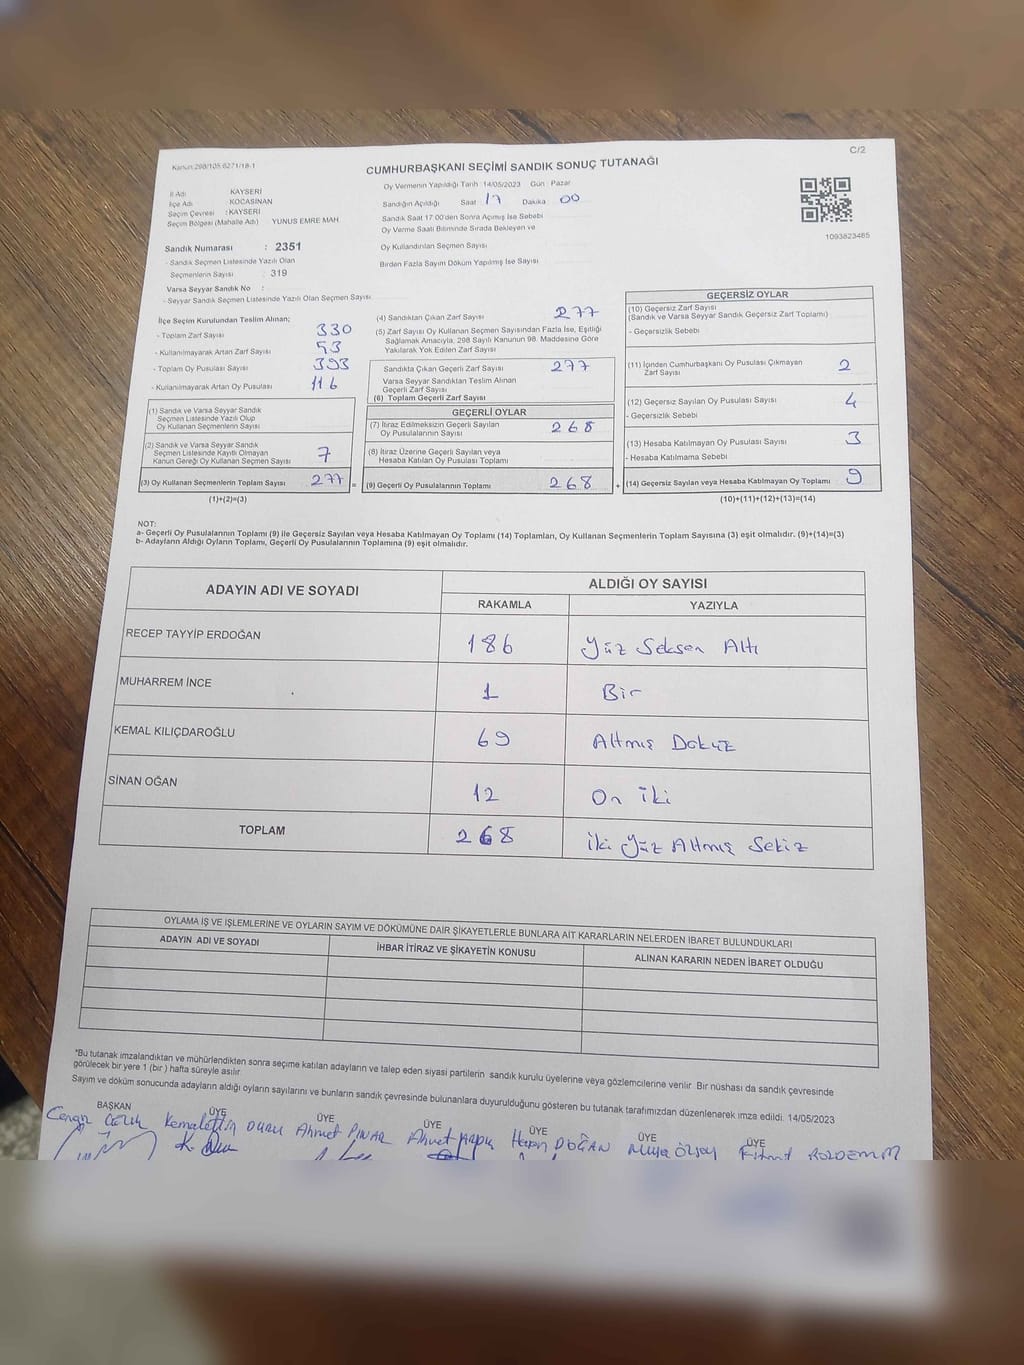 Kanun:298/105,6271/18-1
C/2
CUMHURBAŞKANI SEÇİMİ SANDIK SONUÇ TUTANAĞI
İl Adı : KAYSERİ
İlçe Adı : KOCASİNAN
Seçim Çevresi : KAYSERİ
Seçim Bölgesi (Mahalle Adı) YUNUS EMRE MAH.
Sandık Numarası : 2351
- Sandık Seçmen Listesinde Yazılı Olan
Seçmenlerin Sayısı : 319
Varsa Seyyar Sandık No :
- Seyyar Sandık Seçmen Listesinde Yazılı Olan Seçmen Sayısı
Oy Vermenin Yapıldığı Tarih 14/05/2023 Gün : Pazar
Sandığın Açıldığı Saat 17 Dakika 00
Sandık Saat 17:00'den Sonra Açılmış İse Sebebi
Oy Verme Saati Bitiminde Sırada Bekleyen ve
Oy Kullandırılan Seçmen Sayısı
Birden Fazla Sayım Döküm Yapılmış İse Sayısı
1093823465
İlçe Seçim Kurulundan Teslim Alınan;
- Toplam Zarf Sayısı 330
- Kullanılmayarak Artan Zarf Sayısı 53
- Toplam Oy Pusulası Sayısı 393
- Kullanılmayarak Artan Oy Pusulası 116
(1) Sandık ve Varsa Seyyar Sandık
Seçmen Listesinde Yazılı Olup
Oy Kullanan Seçmenlerin Sayısı
(2) Sandık ve Varsa Seyyar Sandık
Seçmen Listesinde Kayıtlı Olmayan
Kanun Gereği Oy Kullanan Seçmen Sayısı 7
(3) Oy Kullanan Seçmenlerin Toplam Sayısı 277 =
(1)+(2)=(3)
(4) Sandıktan Çıkan Zarf Sayısı 277
(5) Zarf Sayısı Oy Kullanan Seçmen Sayısından Fazla İse, Eşitliği
Sağlamak Amacıyla, 298 Sayılı Kanunun 98. Maddesine Göre
Yakılarak Yok Edilen Zarf Sayısı
Sandıkta Çıkan Geçerli Zarf Sayısı 277
Varsa Seyyar Sandıktan Teslim Alınan
Geçerli Zarf Sayısı
(6) Toplam Geçerli Zarf Sayısı
GEÇERLİ OYLAR
(7) İtiraz Edilmeksizin Geçerli Sayılan
Oy Pusulalarının Sayısı 268
(8) İtiraz Üzerine Geçerli Sayılan veya
Hesaba Katılan Oy Pusulası Toplamı
(9) Geçerli Oy Pusulalarının Toplamı 268 +
GEÇERSİZ OYLAR
(10) Geçersiz Zarf Sayısı
(Sandık ve Varsa Seyyar Sandık Geçersiz Zarf Toplamı)
- Geçersizlik Sebebi
(11) İçinden Cumhurbaşkanı Oy Pusulası Çıkmayan
Zarf Sayısı 2
(12) Geçersiz Sayılan Oy Pusulası Sayısı 4
- Geçersizlik Sebebi
(13) Hesaba Katılmayan Oy Pusulası Sayısı 3
- Hesaba Katılmama Sebebi
(14) Geçersiz Sayılan veya Hesaba Katılmayan Oy Toplamı 9
(10)+(11)+(12)+(13)=(14)
NOT:
a- Geçerli Oy Pusulalarının Toplamı (9) ile Geçersiz Sayılan veya Hesaba Katılmayan Oy Toplamı (14) Toplamları, Oy Kullanan Seçmenlerin Toplam Sayısına (3) eşit olmalıdır. (9)+(14)=(3)
b- Adayların Aldığı Oyların Toplamı, Geçerli Oy Pusulalarının Toplamına (9) eşit olmalıdır.
ADAYIN ADI VE SOYADI ALDIĞI OY SAYISI
RAKAMLA YAZIYLA
RECEP TAYYİP ERDOĞAN 186 Yüz Seksen Altı
MUHARREM İNCE 1 Bir
KEMAL KILIÇDAROĞLU 69 Altmış Dokuz
SİNAN OĞAN 12 On iki
TOPLAM 268 iki yüz Altmış Sekiz
OYLAMA İŞ VE İŞLEMLERİNE VE OYLARIN SAYIM VE DÖKÜMÜNE DAİR ŞİKAYETLERLE BUNLARA AİT KARARLARIN NELERDEN İBARET BULUNDUKLARI
ADAYIN ADI VE SOYADI İHBAR İTİRAZ VE ŞİKAYETİN KONUSU ALINAN KARARIN NEDEN İBARET OLDUĞU
*Bu tutanak imzalandıktan ve mühürlendikten sonra seçime katılan adayların ve talep eden siyasi partilerin sandık kurulu üyelerine veya gözlemcilerine verilir. Bir nüshası da sandık çevresinde
görülecek bir yere 1 (bir) hafta süreyle asılır.
Sayım ve döküm sonucunda adayların aldığı oyların sayılarını ve bunların sandık çevresinde bulunanlara duyurulduğunu gösteren bu tutanak tarafımızdan düzenlenerek imza edildi. 14/05/2023
BAŞKAN ÜYE ÜYE ÜYE ÜYE ÜYE ÜYE
Kemalettin DURU Ahmet PINAR Ahmet Hasan DOĞAN Musa ÖZSOY